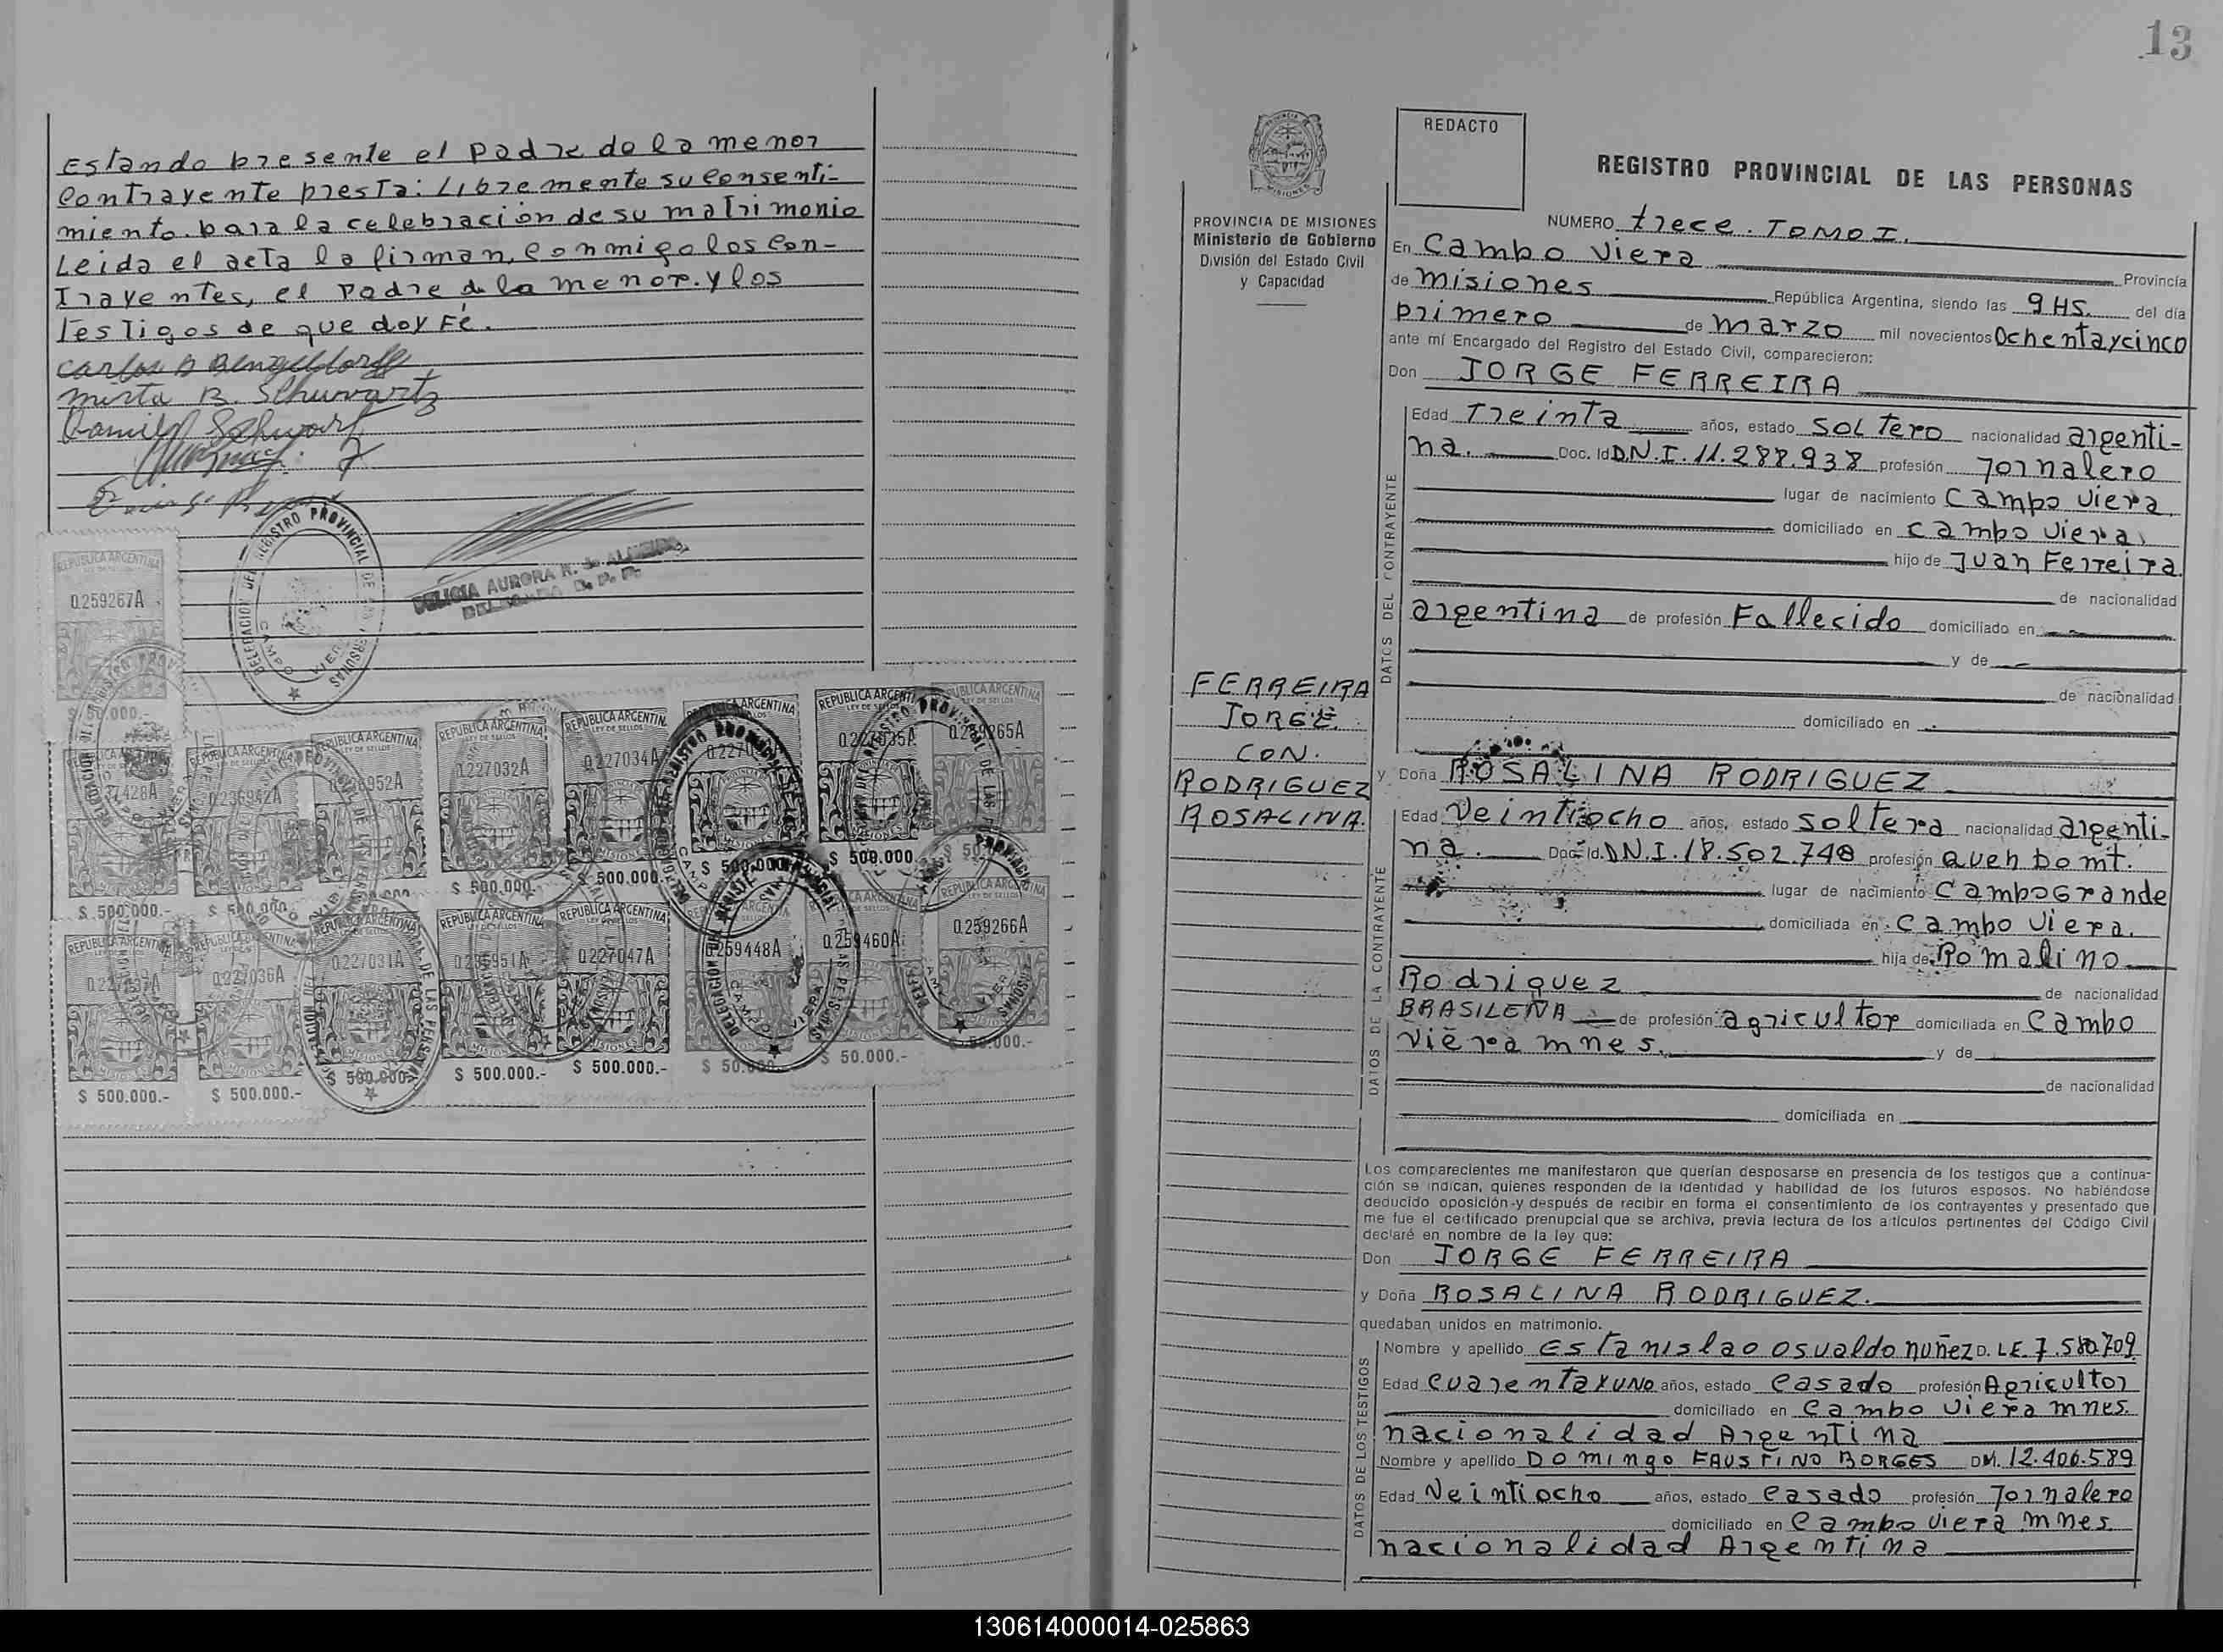 Estando presente el padre de la menor
contrayente presta: Libremente su consenti-
miento para la celebración de su matrimonio
Leida el acta la firman, conmigo los con-
trayentes, el Padre de la menor. y los
testigos de que doy Fé.
Mirta B. Schwartz
REGISTRO PROVINCIAL DE LAS PERSONAS
CAMPO VIERA
DELICIA AURORA
REPUBLICA ARGENTINA
0.259267A
$ 50.000.-
REPUBLICA ARGENTINA
0.236942A
REPUBLICA ARGENTINA
LEY DE SELLOS
0.227032A
$ 500.000.-
REPUBLICA ARGENTINA
LEY DE SELLOS
0.227034A
$ 500.000.-
$ 500.000.-
REPUBLICA ARGENTINA
$ 500.000.-
$ 500.000.-
REPUBLICA ARGENTINA
$ 500.000.-
0.227036A
$ 500.000.-
0.227031A
$ 500.000.-
REPUBLICA ARGENTINA
$ 500.000.-
REPUBLICA ARGENTINA
0.227047A
$ 500.000.-
0.259448A
0.259460A
$ 50.000.-
REPUBLICA ARGENTINA
0.259266A
13
PROVINCIA DE MISIONES
Ministerio de Gobierno
División del Estado Civil
y Capacidad
REDACTO
REGISTRO PROVINCIAL DE LAS PERSONAS
NUMERO trece. TOMO I.
En Campo Viera Provincia
de misiones República Argentina, siendo las 9 HS. del día
primero de marzo mil novecientos Ochentaycinco
ante mí Encargado del Registro del Estado Civil, comparecieron:
Don JORGE FERREIRA
DATOS DEL CONTRAYENTE
Edad Treinta años, estado soltero nacionalidad argenti-
na. Doc. Id D.N.I. 11.288.938 profesión Jornalero
lugar de nacimiento Campo Viera.
domiciliado en Campo Viera
hijo de Juan Ferreira
de nacionalidad
argentina de profesión Fallecido domiciliado en
y de
de nacionalidad
domiciliado en
FERREIRA
JORGE.
CON.
RODRIGUEZ
ROSALINA.
y Doña ROSALINA RODRIGUEZ
DATOS DE LA CONTRAYENTE
Edad Veintiocho años, estado soltera nacionalidad argenti-
na. Doc. Id. DN.I. 18.502.740 profesión
lugar de nacimiento Campo Grande
domiciliada en Campo Viera.
hija de Romalino
Rodriguez de nacionalidad
BRASILEÑA de profesión agricultor domiciliada en Campo
Viera mnes. y de
de nacionalidad
domiciliada en
Los comparecientes me manifestaron que querían desposarse en presencia de los testigos que a continua-
ción se indican, quienes responden de la identidad y habilidad de los futuros esposos. No habiéndose
deducido oposición y después de recibir en forma el consentimiento de los contrayentes y presentado que
me fue el certificado prenupcial que se archiva, previa lectura de los artículos pertinentes del Código Civil
declaré en nombre de la ley que:
Don JORGE FERREIRA
y Doña ROSALINA RODRIGUEZ.
quedaban unidos en matrimonio.
DATOS DE LOS TESTIGOS
Nombre y apellido Estanislao Osvaldo nuñez D. LE. 7.580.709
Edad cuarentayuno años, estado casado profesión Agricultor
domiciliado en Campo Viera mnes.
nacionalidad Argentina
Nombre y apellido Domingo FAUSTINO BORGES DM. 12.406.589
Edad Veintiocho años, estado casado profesión Jornalero
domiciliado en Campo Viera mnes.
nacionalidad Argentina
130614000014-025863